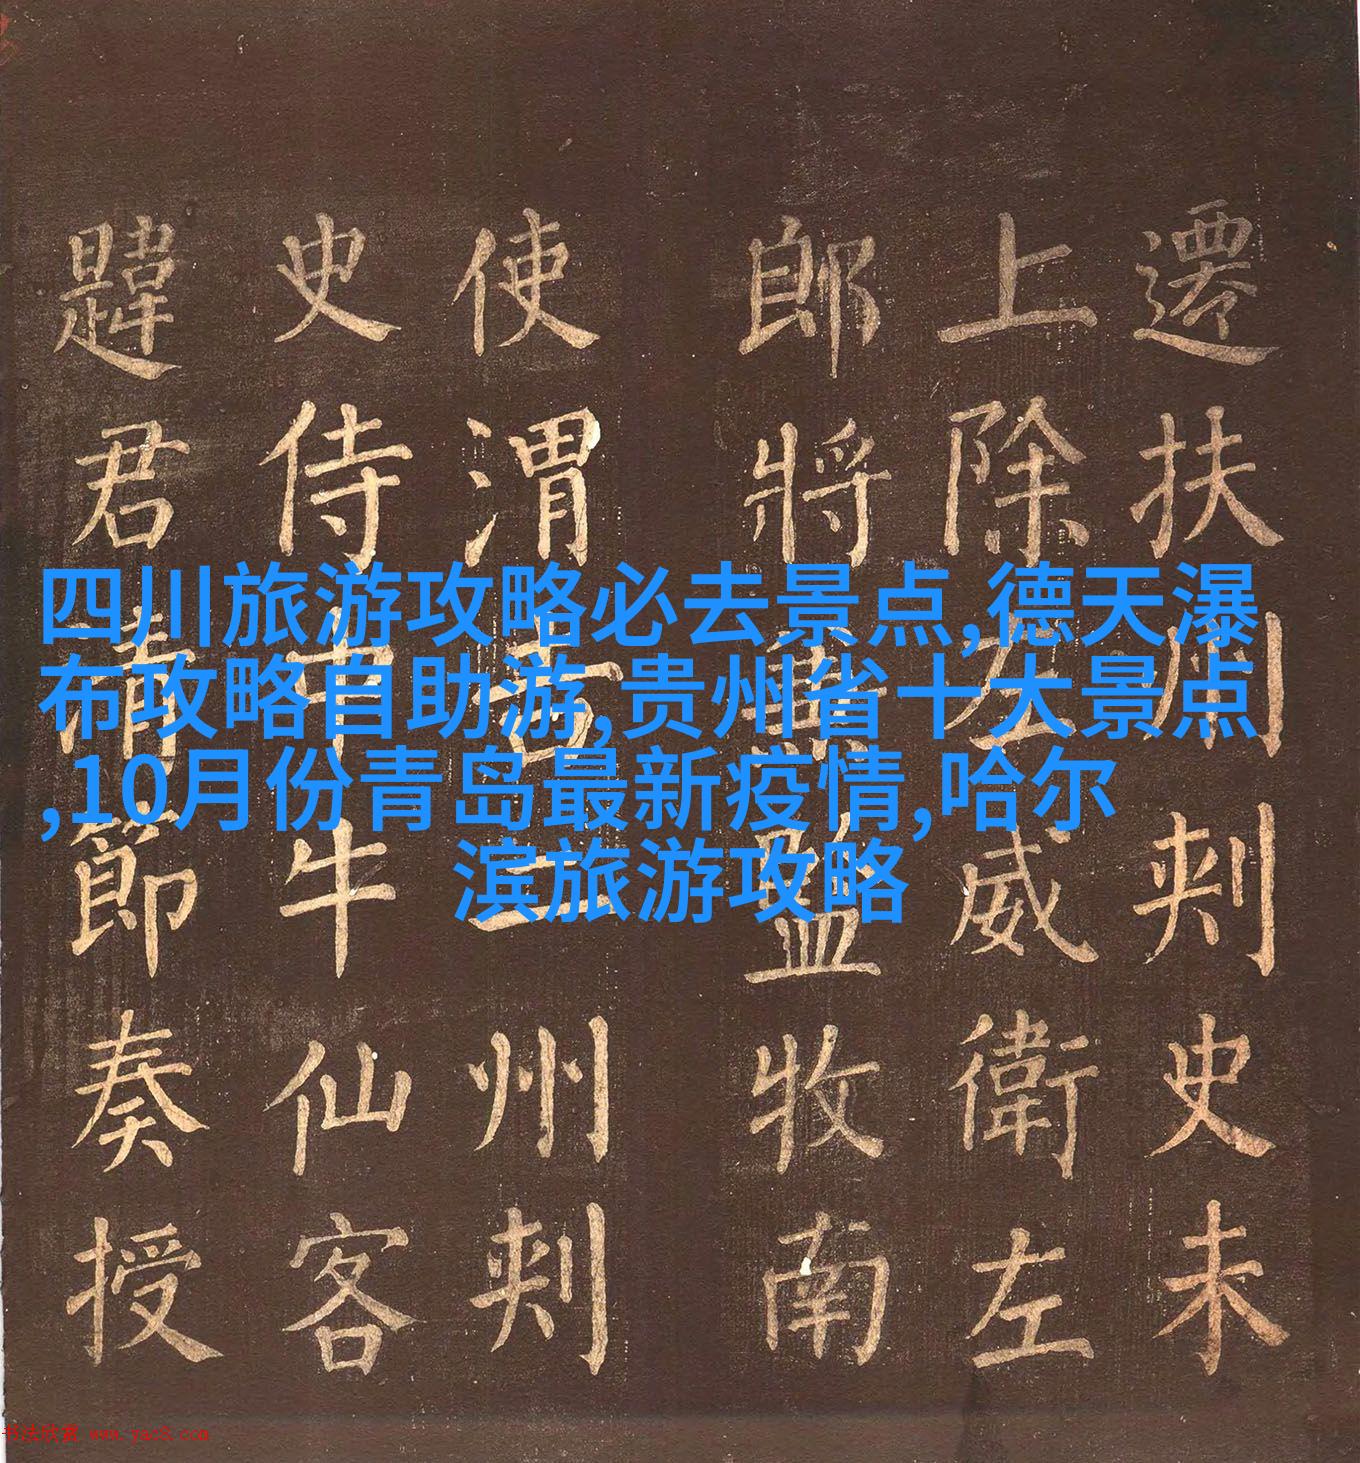 遷扶州刾史未
上除左威衛左
郎將兼監牧南
使渭吉二州刾
史侍中牛仙客
韙君清節奏授
四川旅游攻略必去景点,德天瀑
布攻略自助游,贵州省十大景点
,10月份青岛最新疫情,哈尔
滨旅游攻略
书法欣赏 www.yac8.com